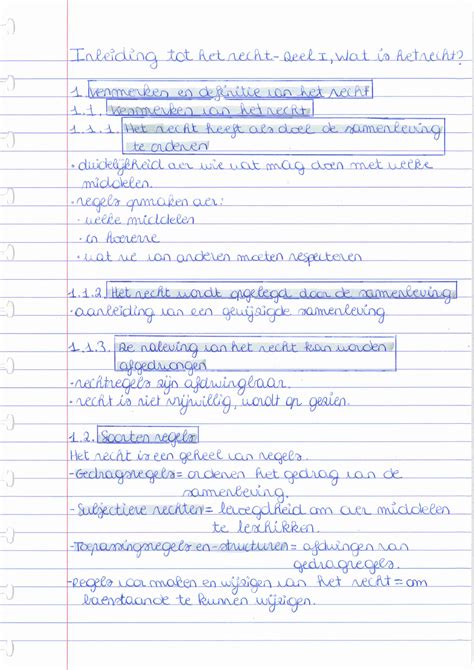 Inleiding tot het recht - Deel I, Wat is het recht?
1. Kenmerken en definitie van het recht
1.1. Kenmerken van het recht
1.1.1. Het recht heeft als doel de samenleving
te ordenen
• duidelijkheid over wie wat mag doen met welke
middelen.
• regels opmaken over:
• welke middelen
• in hoeverre
• wat we van anderen moeten respecteren
1.1.2. Het recht wordt opgelegd door de samenleving
• aanleiding van een gewijzigde samenleving
1.1.3. De naleving van het recht kan worden
afgedwongen
• rechtregels zijn afdwingbaar.
• recht is niet vrijwillig, wordt op gezien.
1.2. Soorten regels
Het recht is een geheel van regels.
- Gedragsregels = ordenen het gedrag van de
samenleving.
- Subjectieve rechten = bevoegdheid om over middelen
te beschikken.
- Toepassingsregels en -structuren = afdwingen van
gedragregels.
- Regels voor maken en wijzigen van het recht = om
bovenstaande te kunnen wijzigen.